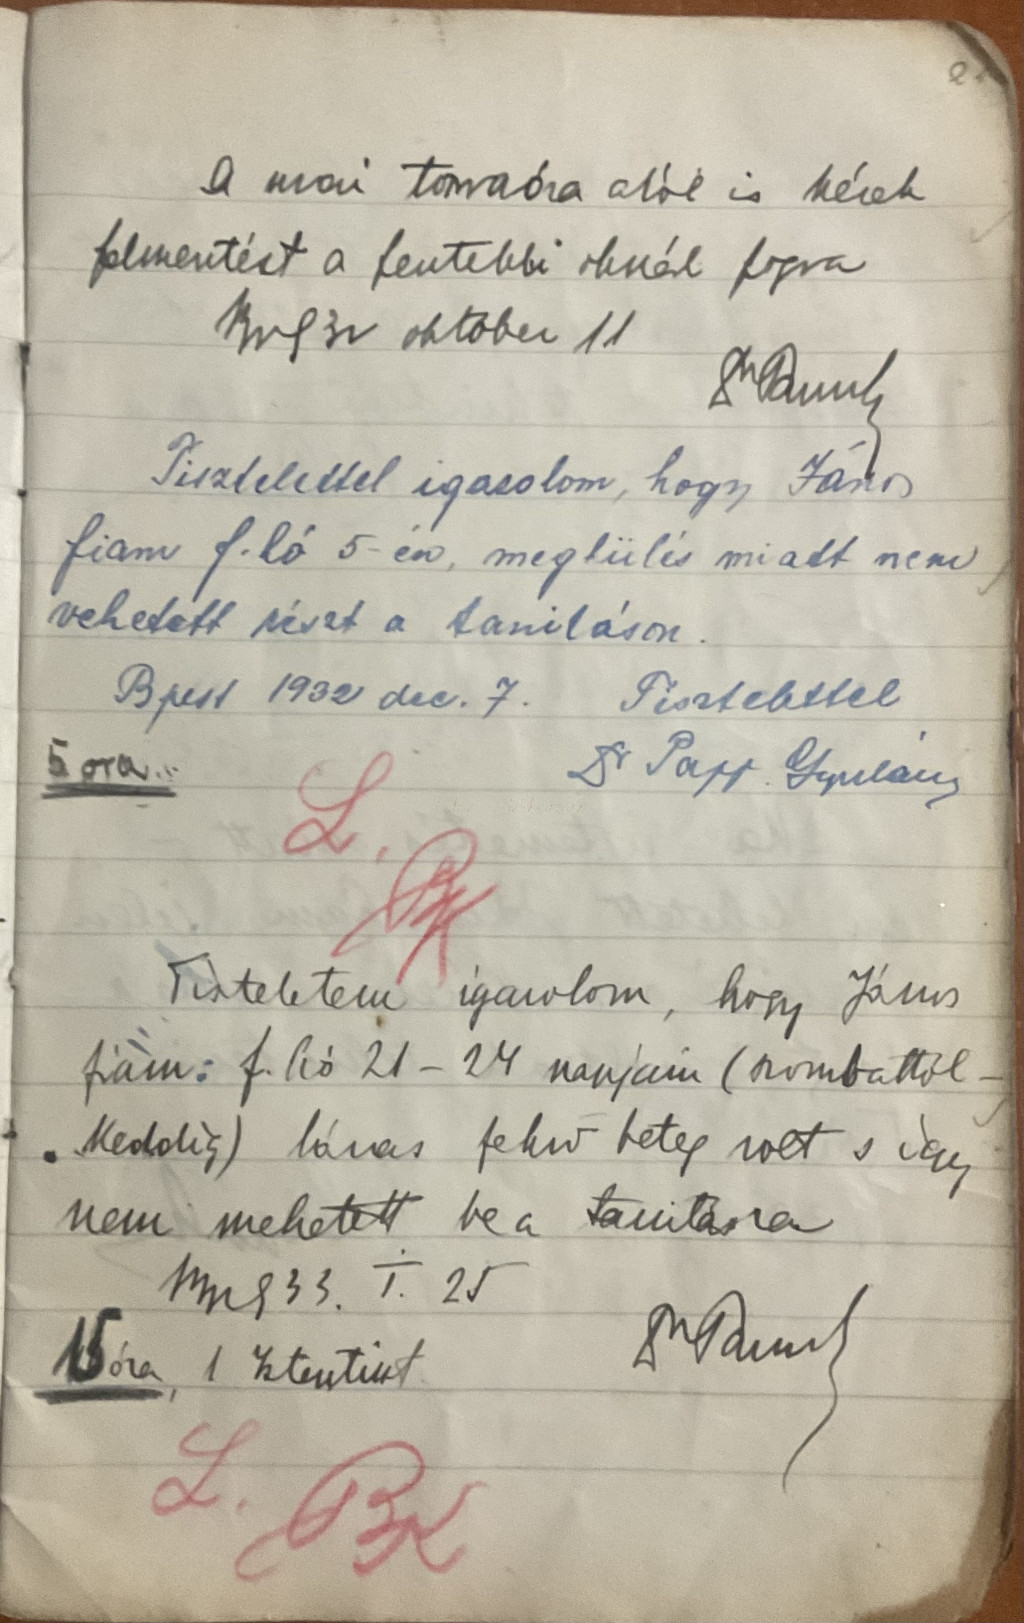 A mai tornaóra alól is kérek
felmentést a fentebbi oknál fogva
Bp 932 október 11
Dr Papp
Tisztelettel igazolom, hogy János
fiam f. hó 5-én, meghülés miatt nem
vehetett részt a tanitáson.
Bpest 1932 dec. 7. Tisztelettel
Dr Papp Gyuláné
5 óra
L.
BK
Tisztelettem igazolom, hogy János
fiam: f. hó 21 – 24 napjain (szombattól –
keddig) lázas fekvő beteg volt s igy
nem mehetett be a tanitásra
Bp 933. I. 25
Dr Papp
15 óra, 1 Istentiszt.
L. BK